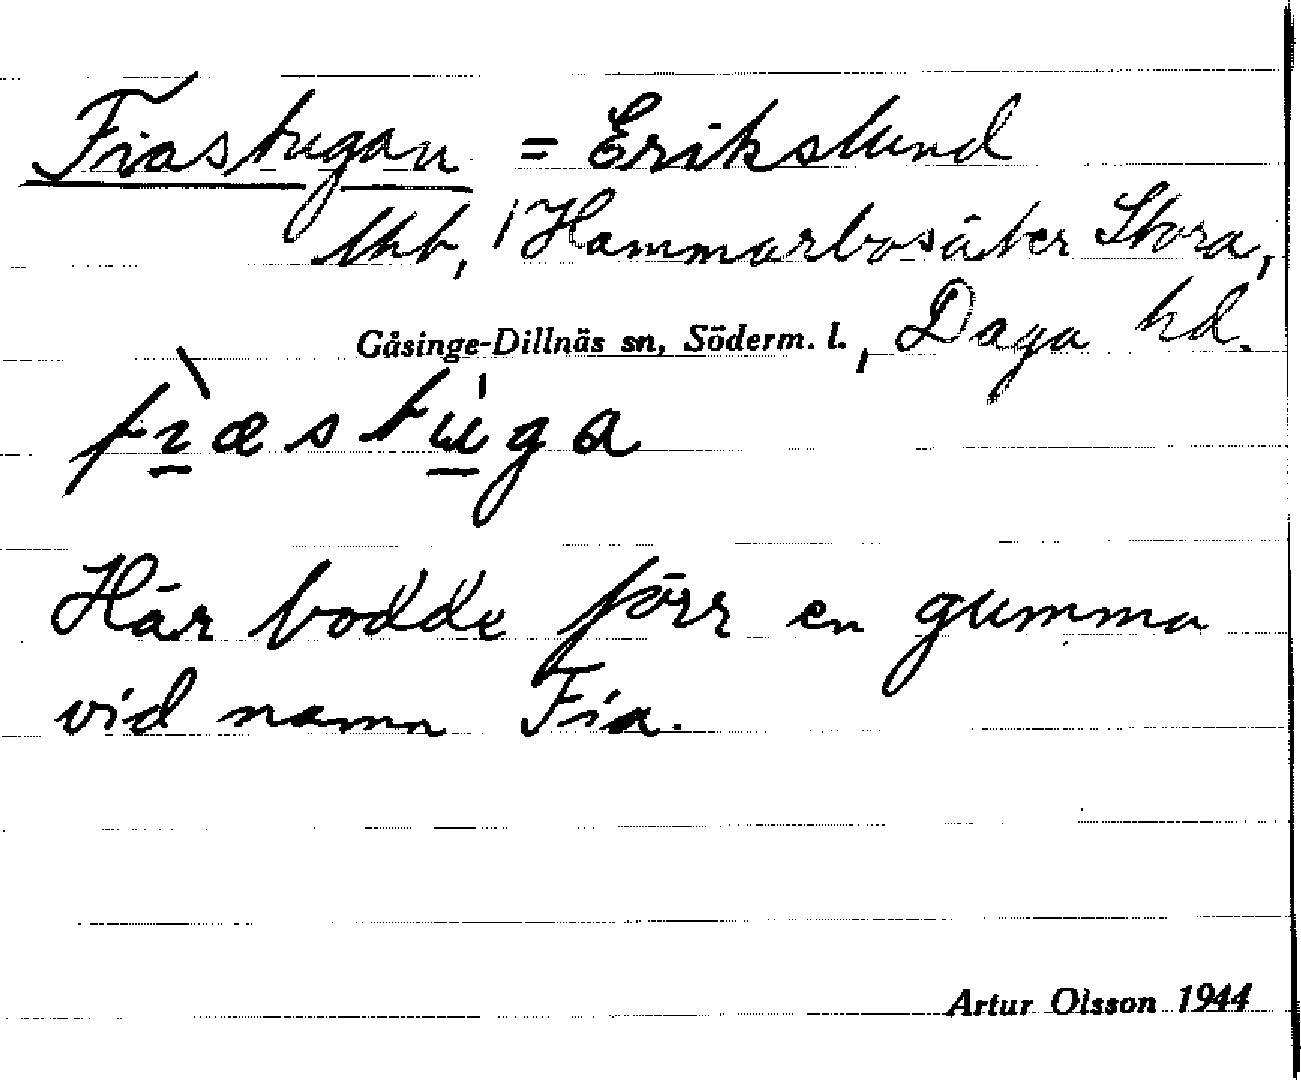 Fiastugan = Erikslund
lht, / Hammarbosäter Stora,
Gåsinge-Dillnäs sn, Söderm. l., Daga hd.
fìæstùga
Här bodde förr en gumma
vid namn Fia.
Artur Olsson 1944